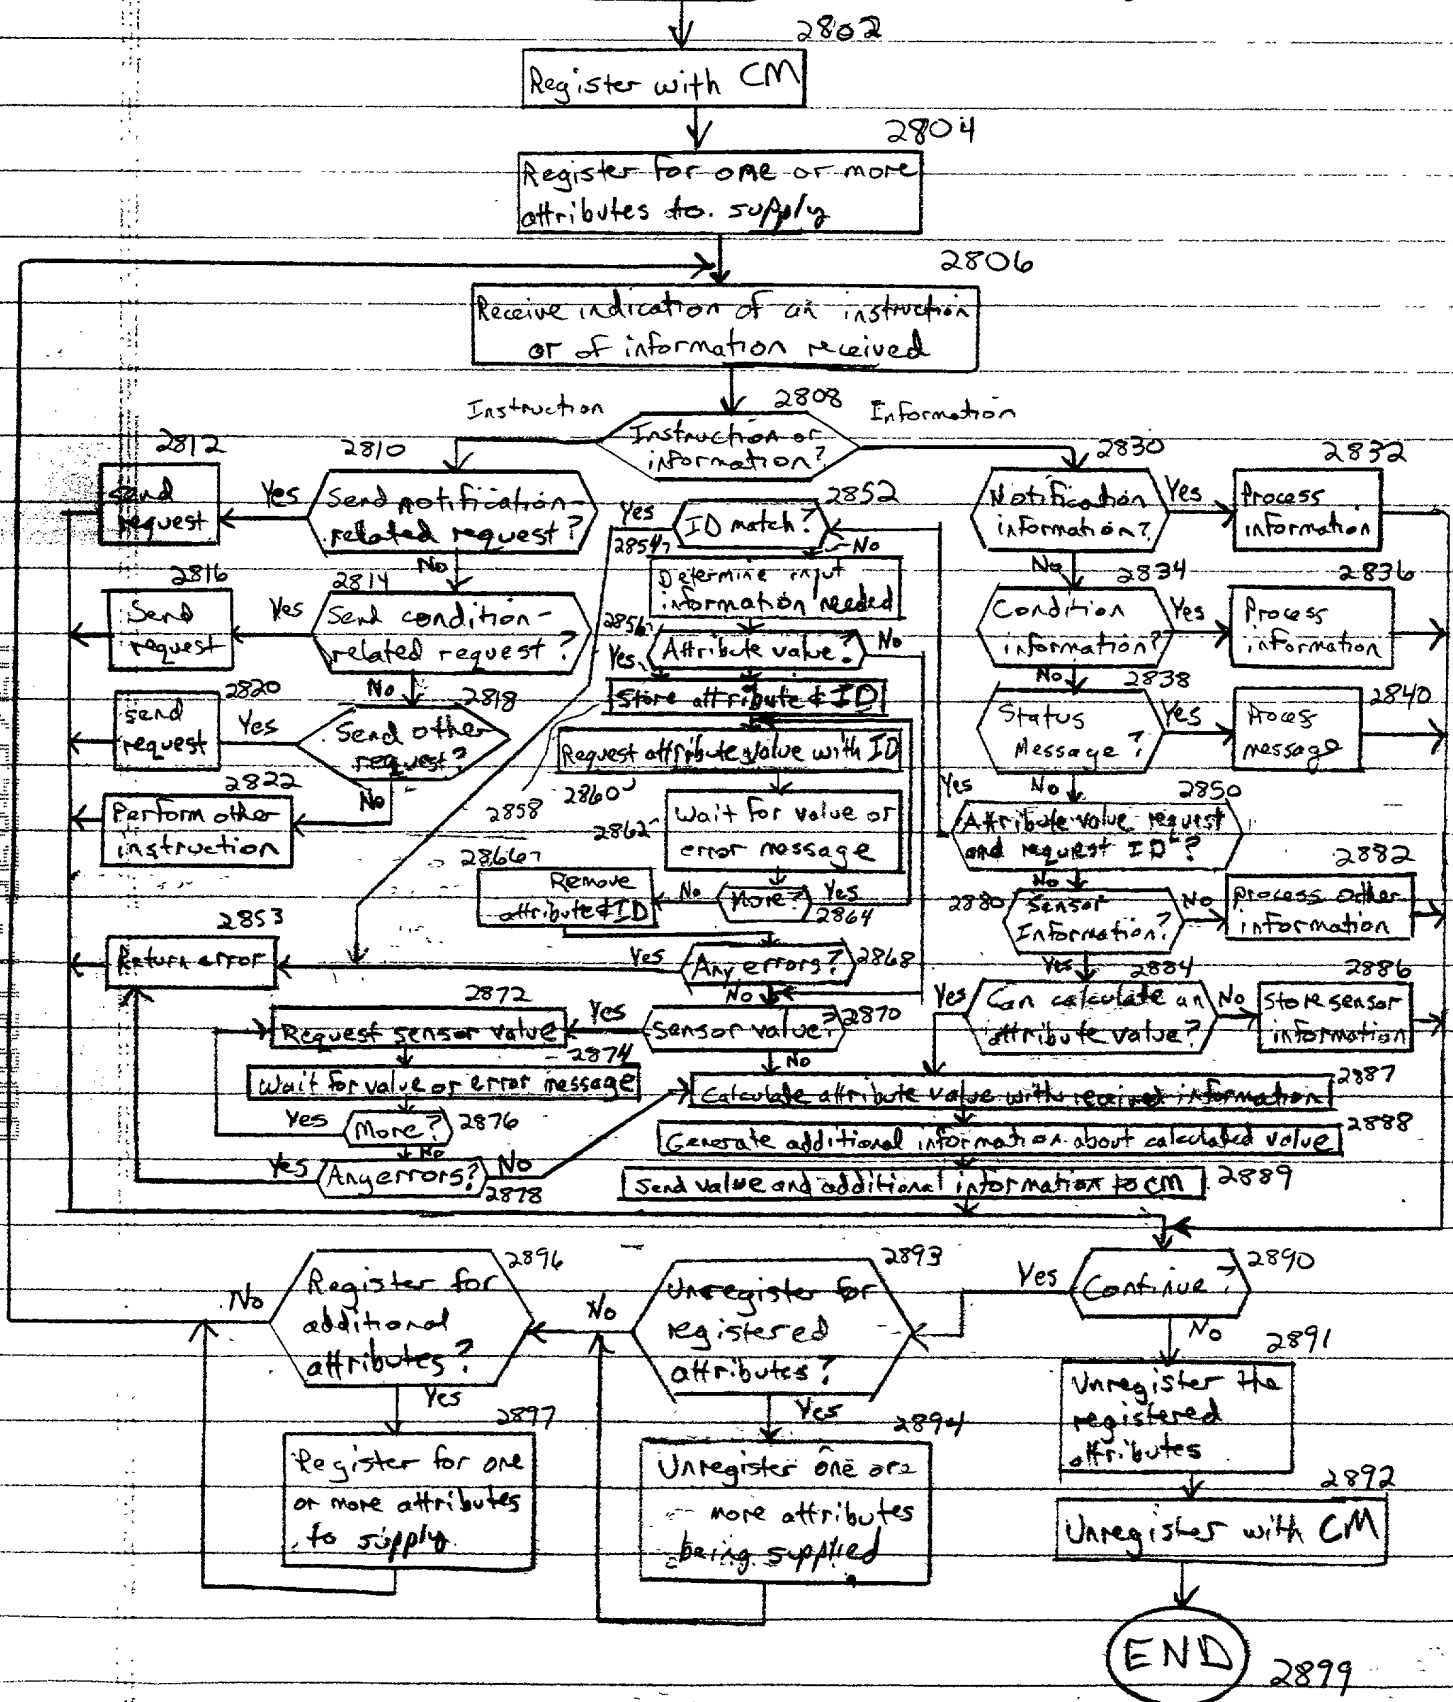 2802
Register with CM
2804
Register for one or more
attributes to supply
2806
Receive indication of an instruction
or of information received
2808
Instruction
Information
Instruction or
information?
2812
Send
request
Yes
2810
Send notification-
related request?
No
2816
Send
request
Yes
2814
Send condition-
related request?
No
2820
send
request
Yes
2818
Send other
request?
No
2822
Perform other
instruction
2852
Yes
ID match?
No
2854
Determine input
information needed
2856
Attribute value?
No
Yes
Store attribute & ID
2858
Request attribute value with ID
2860
2862
Wait for value or
error message
2866
Remove
attribute & ID
No
More?
Yes
2864
2853
Return error
Yes
Any errors?
2868
No
2872
Request sensor value
Yes
Sensor value?
2870
No
2874
Wait for value or error message
Yes
More?
2876
No
Yes
Any errors?
No
2878
2830
Notification
information?
Yes
2832
Process
information
No
2834
Condition
information?
Yes
2836
Process
information
No
2838
Status
Message?
Yes
2840
Process
message
No
2850
Yes
Attribute value request
and request ID?
No
2880
Sensor
Information?
No
2882
process other
information
Yes
2884
Yes
Can calculate an
attribute value?
No
2886
Store sensor
information
2887
Calculate attribute value with received information
2888
Generate additional information about calculated value
Send value and additional information to CM
2889
2896
No
Register for
additional
attributes?
Yes
2897
Register for one
or more attributes
to supply
2893
No
Unregister for
registered
attributes?
Yes
2894
Unregister one or
more attributes
being supplied
2890
Yes
Continue?
No
2891
Unregister the
registered
attributes
2892
Unregister with CM
END
2899